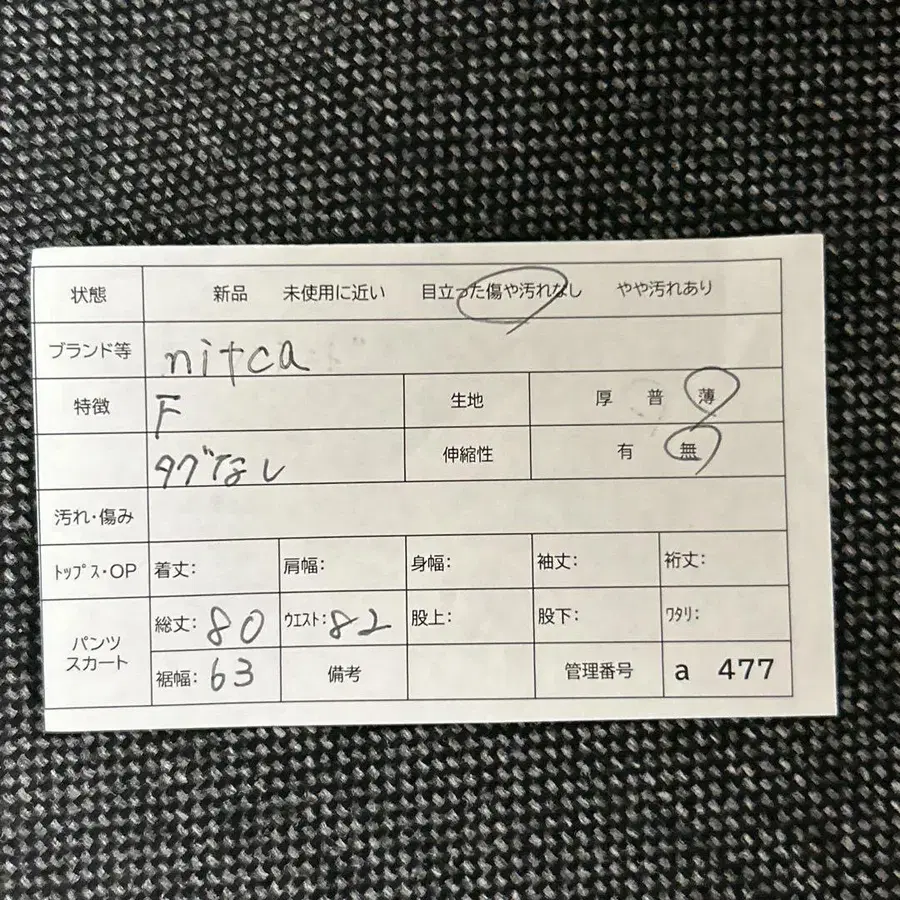 状態 新品 未使用に近い 目立った傷や汚れなし やや汚れあり
ブランド等 nitca
特徴 F 生地 厚 普 薄
タグなし 伸縮性 有 無
汚れ・傷み
ﾄｯﾌﾟｽ・OP 着丈: 肩幅: 身幅: 袖丈: 裄丈:
パンツ スカート 総丈: 80 ｳｴｽﾄ: 82 股上: 股下: ﾜﾀﾘ:
裾幅: 63 備考 管理番号 a 477